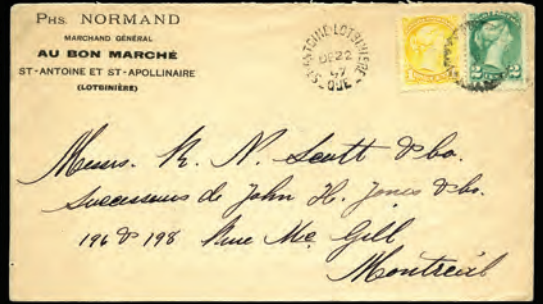 PHS. NORMAND
MARCHAND GÉNÉRAL
AU BON MARCHÉ
ST-ANTOINE ET ST-APOLLINAIRE
(LOTBINIÈRE)
ST ANTOINE LOTBINIERE
DE 22
97
QUE
2 CENTS 2
Messrs. R. N. Scott & Co.
Successeurs de John H. Jones & Co.
196 & 198 Rue Mc Gill
Montreal